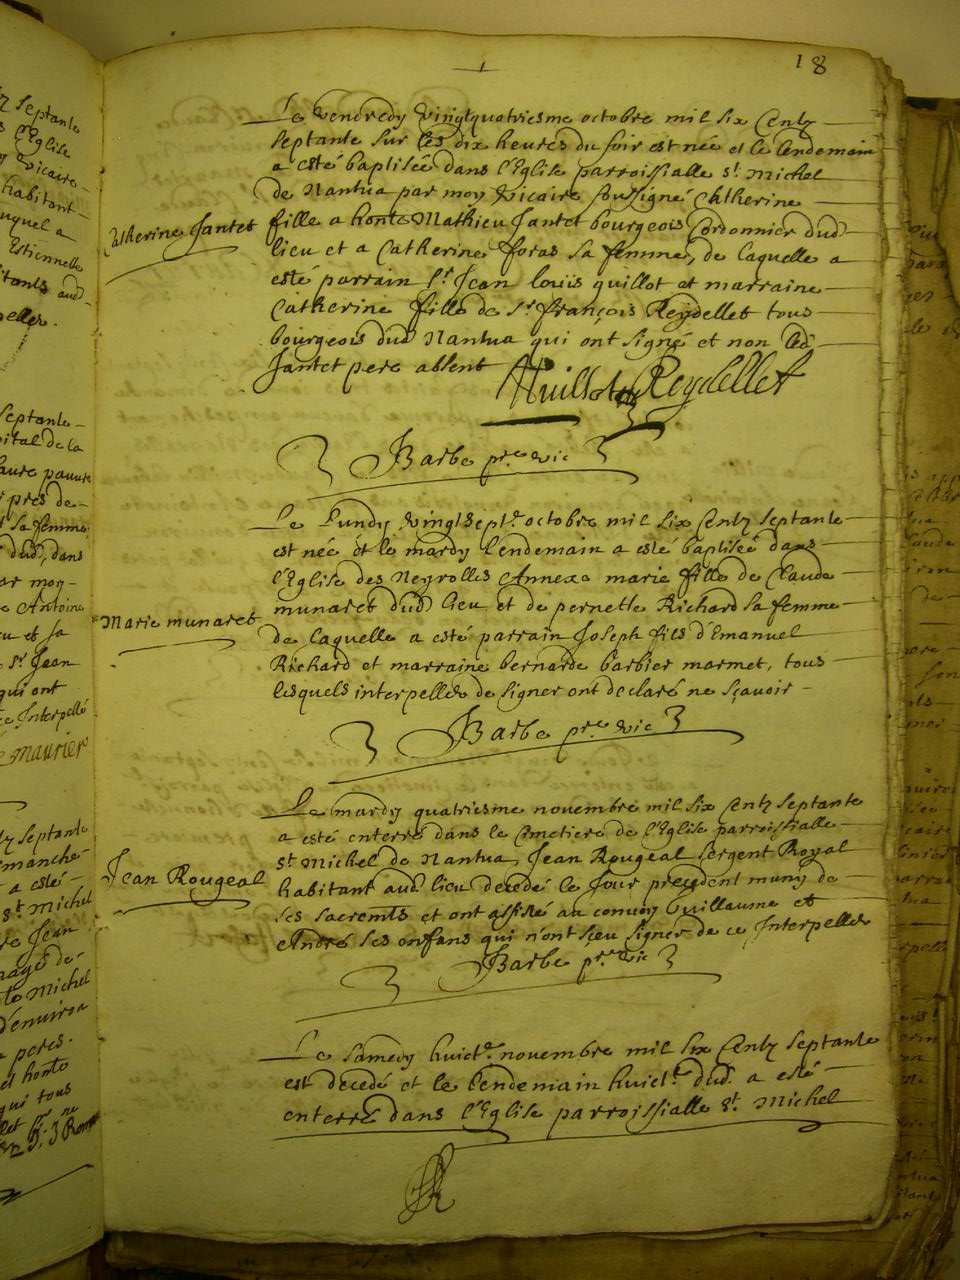 18
Le vendredy vingtquatriesme octobre mil six Centz
septante sur les dix heures du soir est née et le lendemain
a esté baptisée dans l'Eglise parroissialle st. Michel
de Nantua par moy vicaire soussigné Catherine
Catherine Jantet
fille a honte Mathieu Jantet bourgeois Cordonnier dud.
lieu et a Catherine foras sa femme, de laquelle a
esté parrain sr. Jean louïs guillot et marraine
Catherine fille de sr. françois Reydellet tous
bourgeois dud. Nantua qui ont signé et non led.
Jantet pere absent
Guillot Reydellet
Barbe pre. vic
Le Lundy vingtsept.e octobre mil six Centz septante
est née et le mardy lendemain a esté baptisée dans
l'Eglise des Neyrolles Annexe marie fille de Claude
Marie munaret
munaret dud. lieu et de pernette Richard sa femme
de laquelle a esté parrain Joseph fils d'Emanuel
Richard et marraine bernarde barbier marmet, tous
lesquels interpellés de signer ont declaré ne sçavoir
Barbe pre. vic
Le mardy quatriesme novembre mil six Centz septante
a esté enterré dans le Cimetiere de l'Eglise parroissialle
st. Michel de Nantua Jean Rougeal sergent Royal
Jean Rougeal
habitant aud. lieu decedé le Jour precedent muny de
ses sacremts et ont assisté au convoy Guillaume et
André ses enfans qui n'ont sçeu signer de ce Interpellés
Barbe pre. vic
Le samedy huict.e novembre mil six Centz septante
est decedé et le lendemain huict.e dud. a esté
enterré dans l'Eglise parroissialle st. Michel